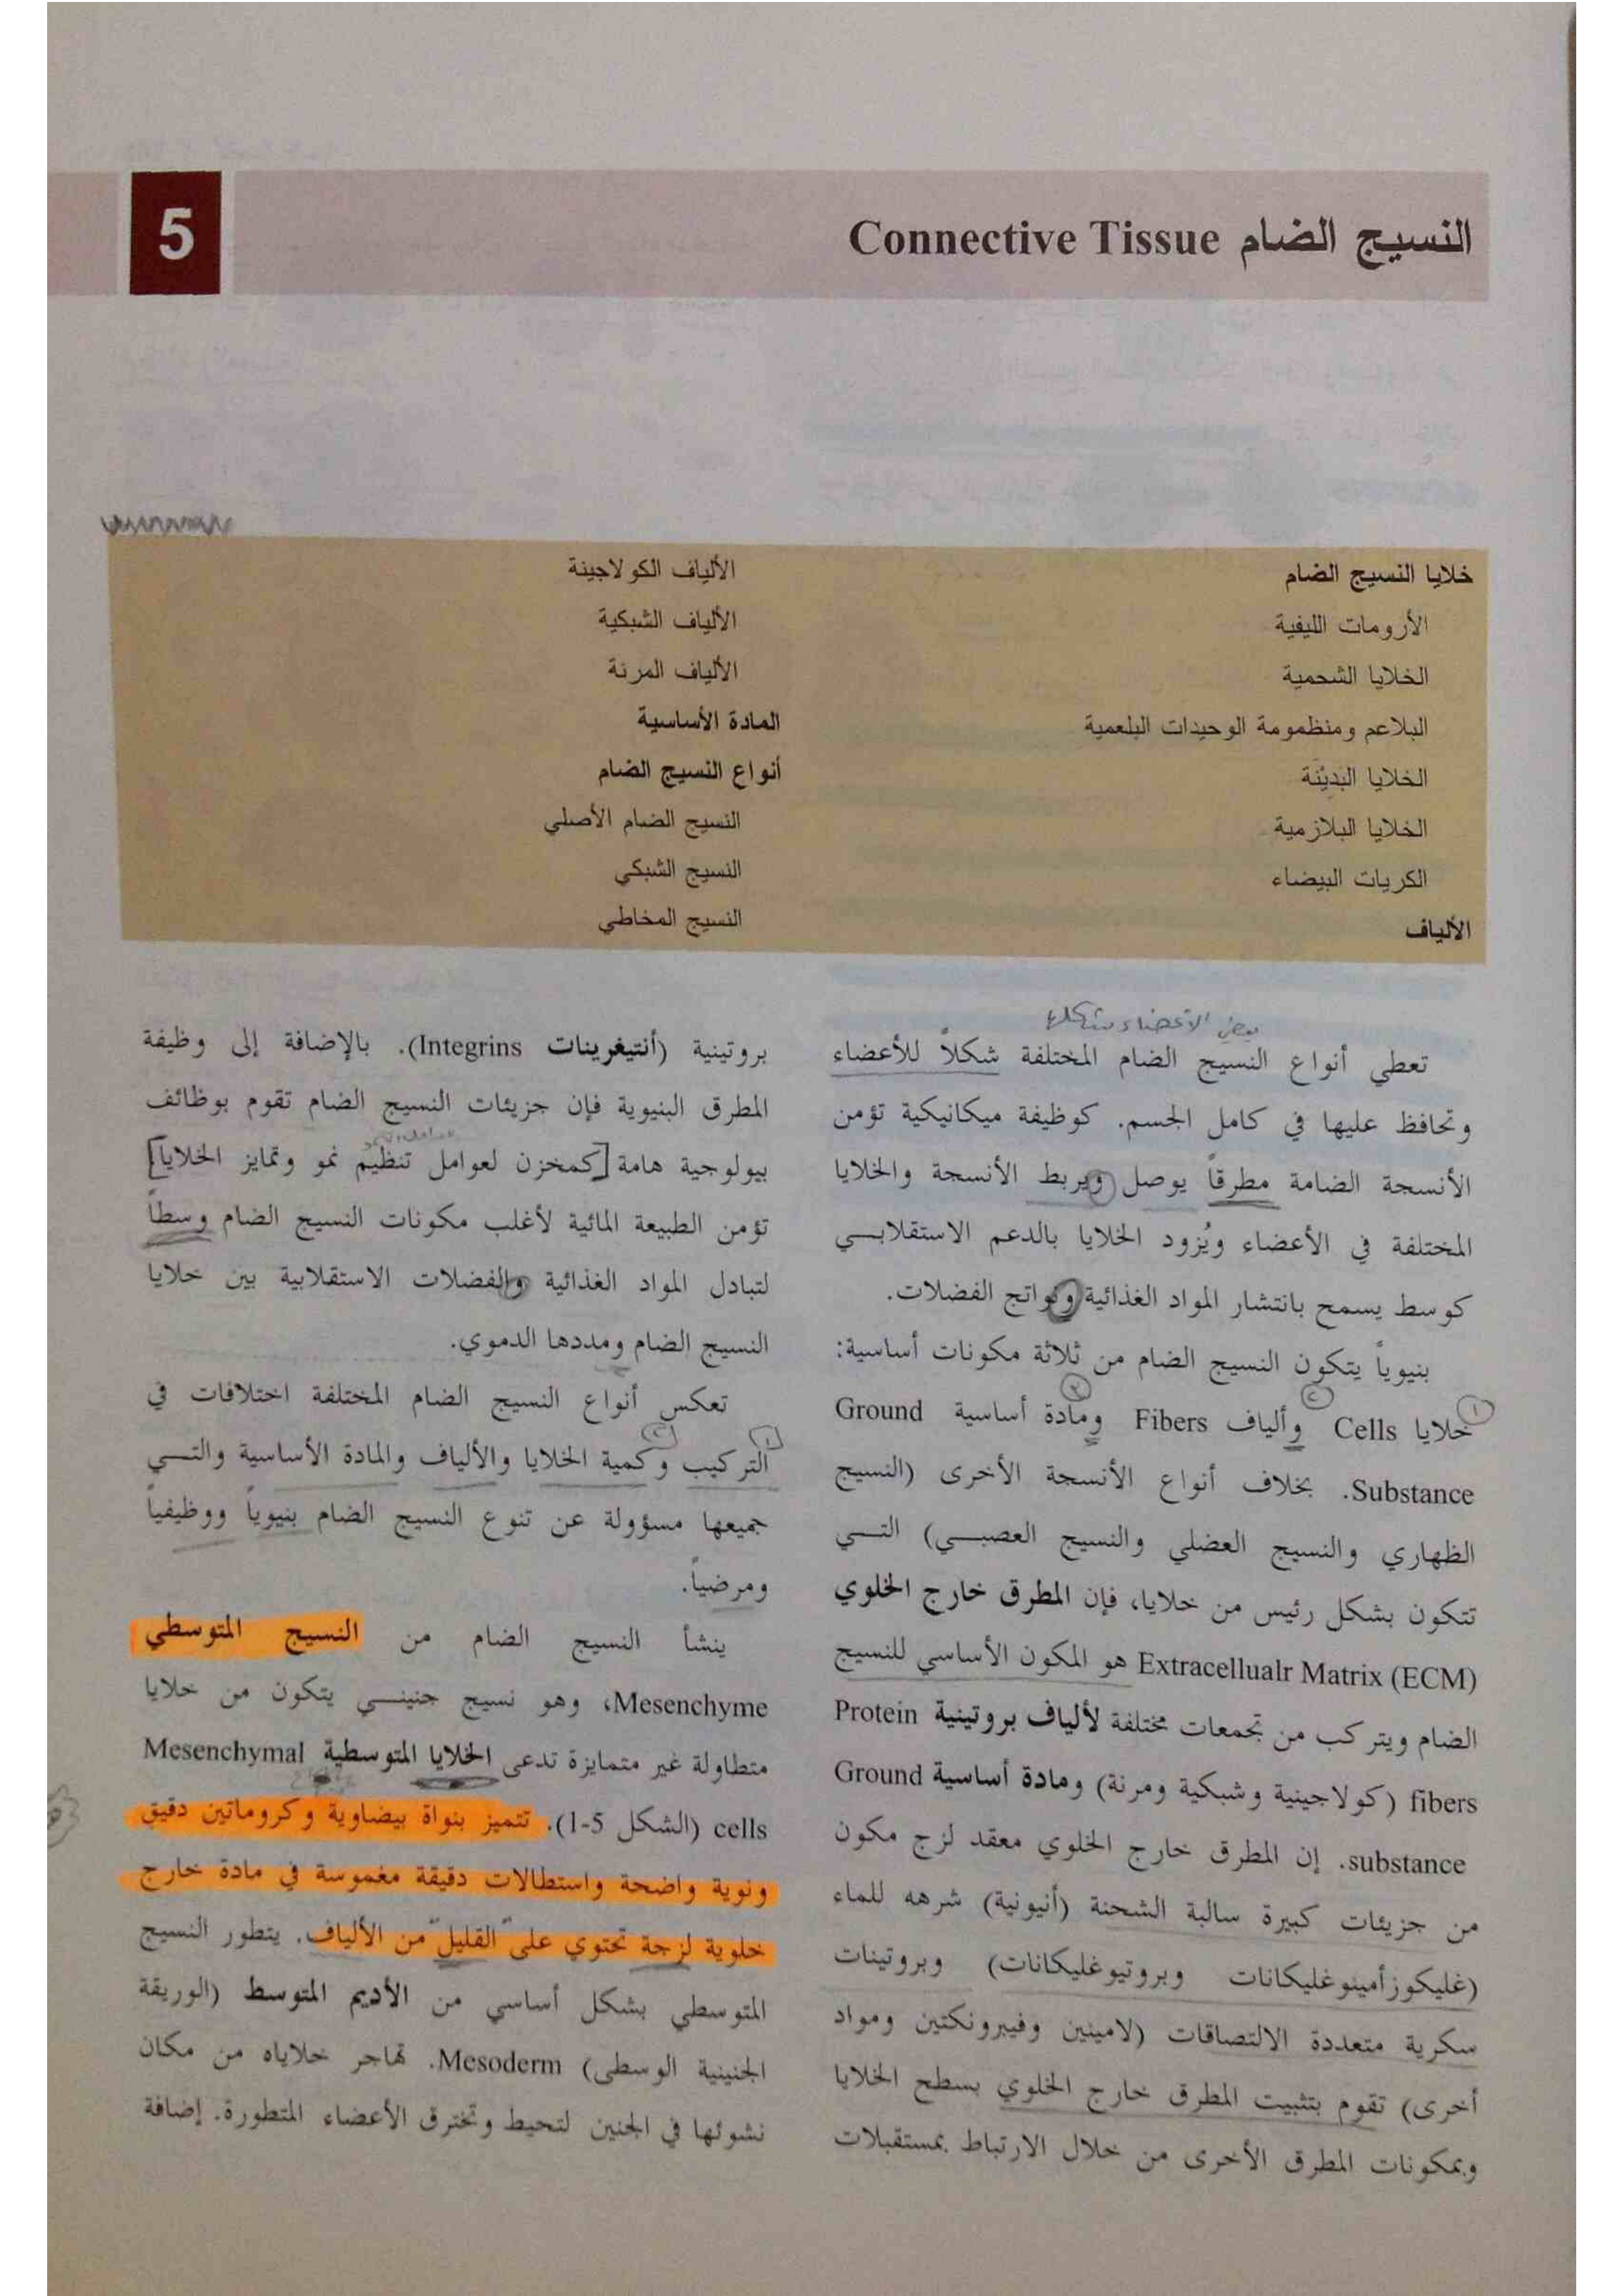 النسيج الضام Connective Tissue
5
خلايا النسيج الضام
الأرومات الليفية
الخلايا الشحمية
البلاعم ومنظومة الوحيدات البلعمية
الخلايا البَدِيْنَة
الخلايا البلازمية
الكريات البيضاء
الألياف
الألياف الكولاجينة
الألياف الشبكية
الألياف المرنة
المادة الأساسية
أنواع النسيج الضام
النسيج الضام الأصلي
النسيج الشبكي
النسيج المخاطي
بعض الأعضاء
تعطي أنواع النسيج الضام المختلفة شكلاً للأعضاء
وتحافظ عليها في كامل الجسم. كوظيفة ميكانيكية تؤمن
الأنسجة الضامة مطرقاً يوصل ويربط الأنسجة والخلايا
المختلفة في الأعضاء ويُزود الخلايا بالدعم الاستقلابي
كوسط يسمح بانتشار المواد الغذائية ونواتج الفضلات.
بنيوياً يتكون النسيج الضام من ثلاثة مكونات أساسية:
خلايا Cells وألياف Fibers ومادة أساسية Ground
Substance. بخلاف أنواع الأنسجة الأخرى (النسيج
الظهاري والنسيج العضلي والنسيج العصبي) التي
تتكون بشكل رئيس من خلايا، فإن المطرق خارج الخلوي
Extracellualr Matrix (ECM) هو المكون الأساسي للنسيج
الضام ويتركب من تجمعات مختلفة لألياف بروتينية Protein
fibers (كولاجينية وشبكية ومرنة) ومادة أساسية Ground
substance. إن المطرق خارج الخلوي معقد لزج مكون
من جزيئات كبيرة سالبة الشحنة (أنيونية) شرهه للماء
(غليكوزأمينوغليكانات وبروتيوغليكانات) وبروتينات
سكرية متعددة الالتصاقات (لامينين وفيبرونكتين ومواد
أخرى) تقوم بتثبيت المطرق خارج الخلوي بسطح الخلايا
وبمكونات المطرق الأخرى من خلال الارتباط بمستقبلات
بروتينية (أنتيغرينات Integrins). بالإضافة إلى وظيفة
المطرق البنيوية فإن جزيئات النسيج الضام تقوم بوظائف
بيولوجية هامة [كمخزن لعوامل تنظيم نمو وتمايز الخلايا]
تؤمن الطبيعة المائية لأغلب مكونات النسيج الضام وسطاً
لتبادل المواد الغذائية والفضلات الاستقلابية بين خلايا
النسيج الضام ومددها الدموي.
تعكس أنواع النسيج الضام المختلفة اختلافات في
التركيب وكمية الخلايا والألياف والمادة الأساسية والتي
جميعها مسؤولة عن تنوع النسيج الضام بنيوياً ووظيفياً
ومرضياً.
ينشأ النسيج الضام من النسيج المتوسطي
Mesenchyme، وهو نسيج جنيني يتكون من خلايا
متطاولة غير متمايزة تدعى الخلايا المتوسطية Mesenchymal
cells (الشكل 5-1). تتميز بنواة بيضاوية وكروماتين دقيق
ونوية واضحة واستطالات دقيقة مغموسة في مادة خارج
خلوية لزجة تحتوي على القليل من الألياف. يتطور النسيج
المتوسطي بشكل أساسي من الأديم المتوسط (الوريقة
الجنينية الوسطى) Mesoderm. تهاجر خلاياه من مكان
نشوئها في الجنين لتحيط وتخترق الأعضاء المتطورة. إضافة